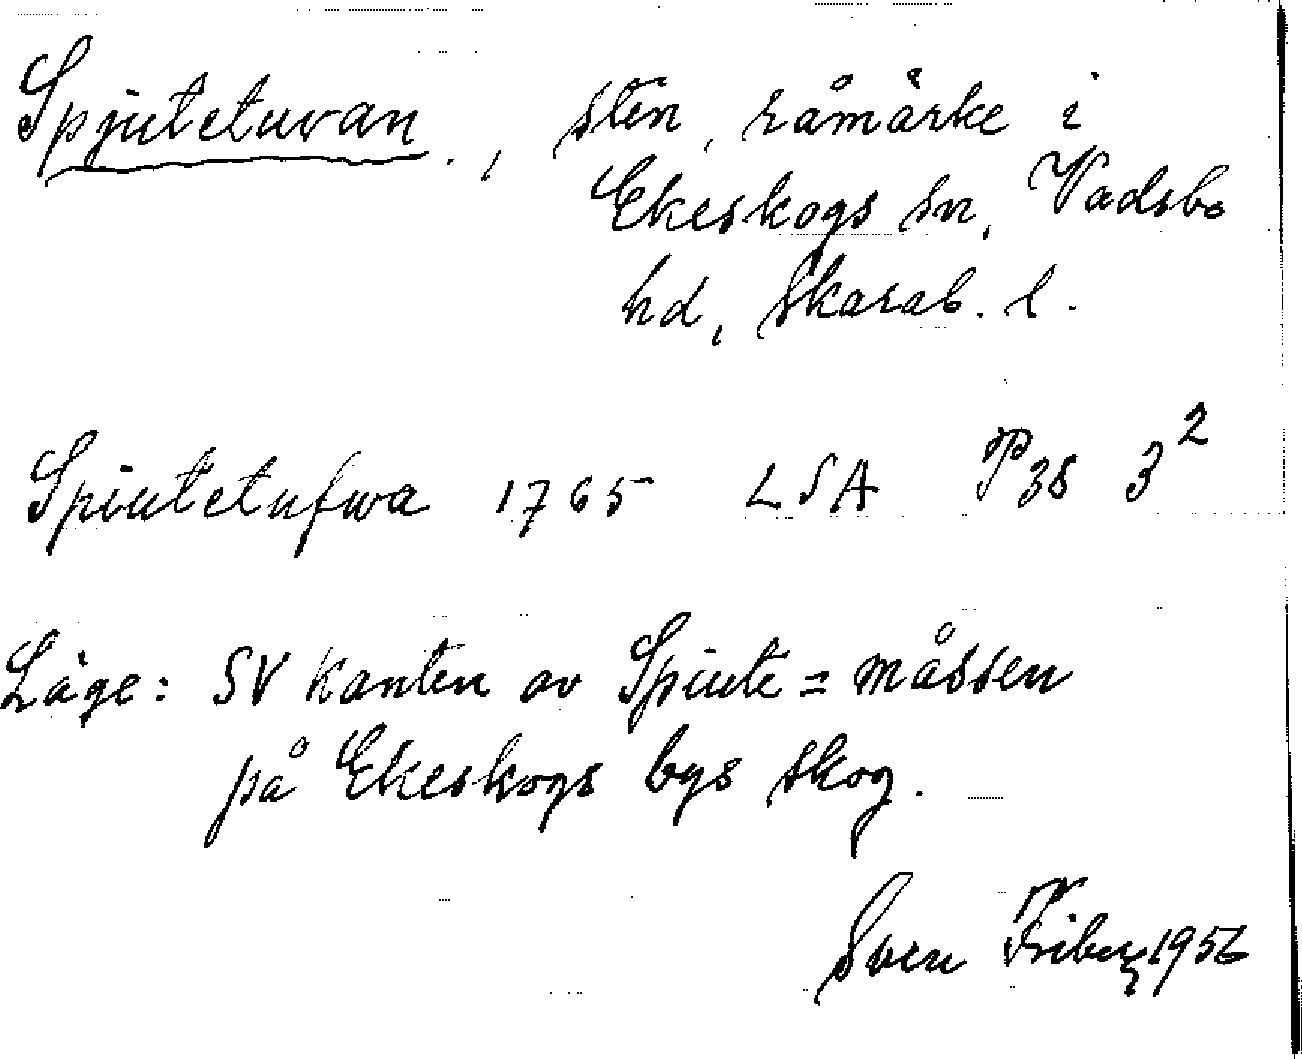 Spjutetuvan., sten, råmärke i
Ekeskogs sn, Vadsbo
hd, Skarab. l.
Spiutetufwa 1765 LSA P38 3²
Läge: SV kanten av Spiute=måssen
på Ekeskogs bys skog.
Sven Friberg 1956